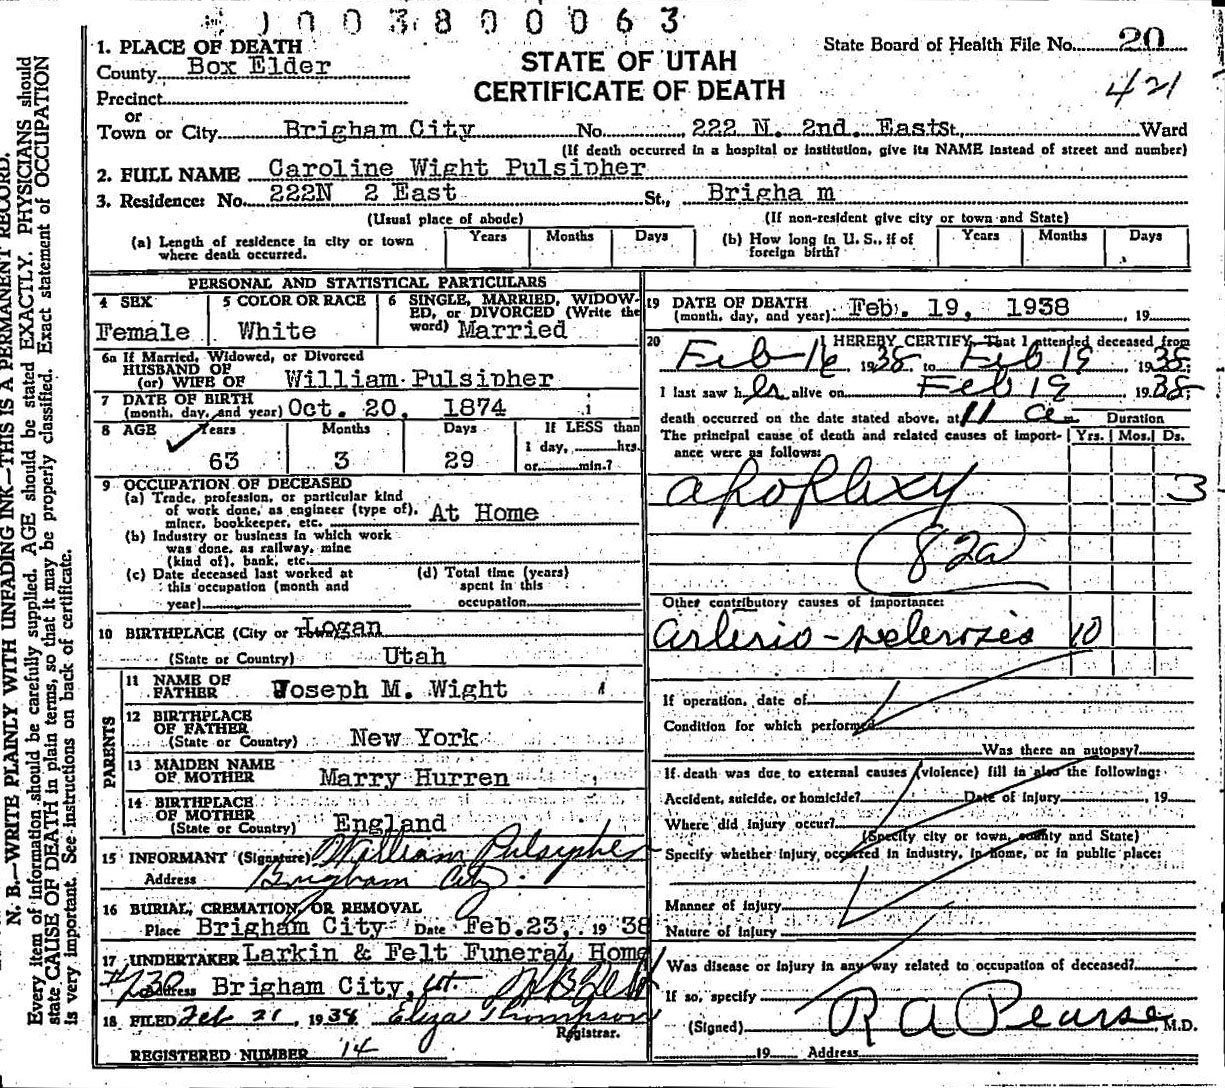 003800063
1. PLACE OF DEATH
County Box Elder
Precinct
or
Town or City Brigham City No. 222 N. 2nd. East St., Ward
STATE OF UTAH
CERTIFICATE OF DEATH
State Board of Health File No. 20
421
(If death occurred in a hospital or institution, give its NAME instead of street and number)
2. FULL NAME Caroline Wight Pulsipher
3. Residence: No. 222N 2 East St., Brigha m
(Usual place of abode) (If non-resident give city or town and State)
(a) Length of residence in city or town where death occurred. Years Months Days
(b) How long in U. S., if of foreign birth? Years Months Days
PERSONAL AND STATISTICAL PARTICULARS
4 SEX Female
5 COLOR OR RACE White
6 SINGLE, MARRIED, WIDOW-
ED, or DIVORCED (Write the
word) Married
6a If Married, Widowed, or Divorced
HUSBAND OF
(or) WIFE OF William Pulsipher
7 DATE OF BIRTH
(month, day, and year) Oct. 20, 1874
8 AGE Years Months Days If LESS than
1 day, hrs.
63 3 29 or min.?
9 OCCUPATION OF DECEASED
(a) Trade, profession, or particular kind
of work done, as engineer (type of),
miner, bookkeeper, etc. At Home
(b) Industry or business in which work
was done, as railway, mine
(kind of), bank, etc.
(c) Date deceased last worked at
this occupation (month and
year)
(d) Total time (years)
spent in this
occupation
10 BIRTHPLACE (City or Town) Logan
(State or Country) Utah
PARENTS
11 NAME OF
FATHER Joseph M. Wight
12 BIRTHPLACE
OF FATHER
(State or Country) New York
13 MAIDEN NAME
OF MOTHER Marry Hurren
14 BIRTHPLACE
OF MOTHER
(State or Country) England
15 INFORMANT (Signature) William Pulsipher
Address Brigham City
16 BURIAL, CREMATION, OR REMOVAL
Place Brigham City Date Feb.23, 1938
17 UNDERTAKER Larkin & Felt Funeral Home
Address Brigham City,
18 FILED Feb 21, 1938 Eliza Thompson
Registrar.
REGISTERED NUMBER 14
19 DATE OF DEATH
(month, day, and year) Feb. 19, 1938 , 19
20 I HEREBY CERTIFY, That I attended deceased from
Feb 16 1938 to Feb 19 1938
I last saw her alive on Feb 19 1938
death occurred on the date stated above, at 11 a m
Duration
The principal cause of death and related causes of import-
ance were as follows: Yrs. Mos. Ds.
apoplexy 3
82a
Other contributory causes of importance:
arterio-sclerosis 10
If operation, date of
Condition for which performed
Was there an autopsy?
If death was due to external causes (violence) fill in also the following:
Accident, suicide, or homicide? Date of injury , 19
Where did injury occur?
(Specify city or town, county and State)
Specify whether injury occurred in industry, in home, or in public place:
Manner of injury
Nature of injury
Was disease or injury in any way related to occupation of deceased?
If so, specify
(Signed) R A Pearse, M.D.
19 Address
N. B.—WRITE PLAINLY WITH UNFADING INK—THIS IS A PERMANENT RECORD.
Every item of information should be carefully supplied. AGE should be stated EXACTLY. PHYSICIANS should
state CAUSE OF DEATH in plain terms, so that it may be properly classified. Exact statement of OCCUPATION
is very important. See instructions on back of certificate.